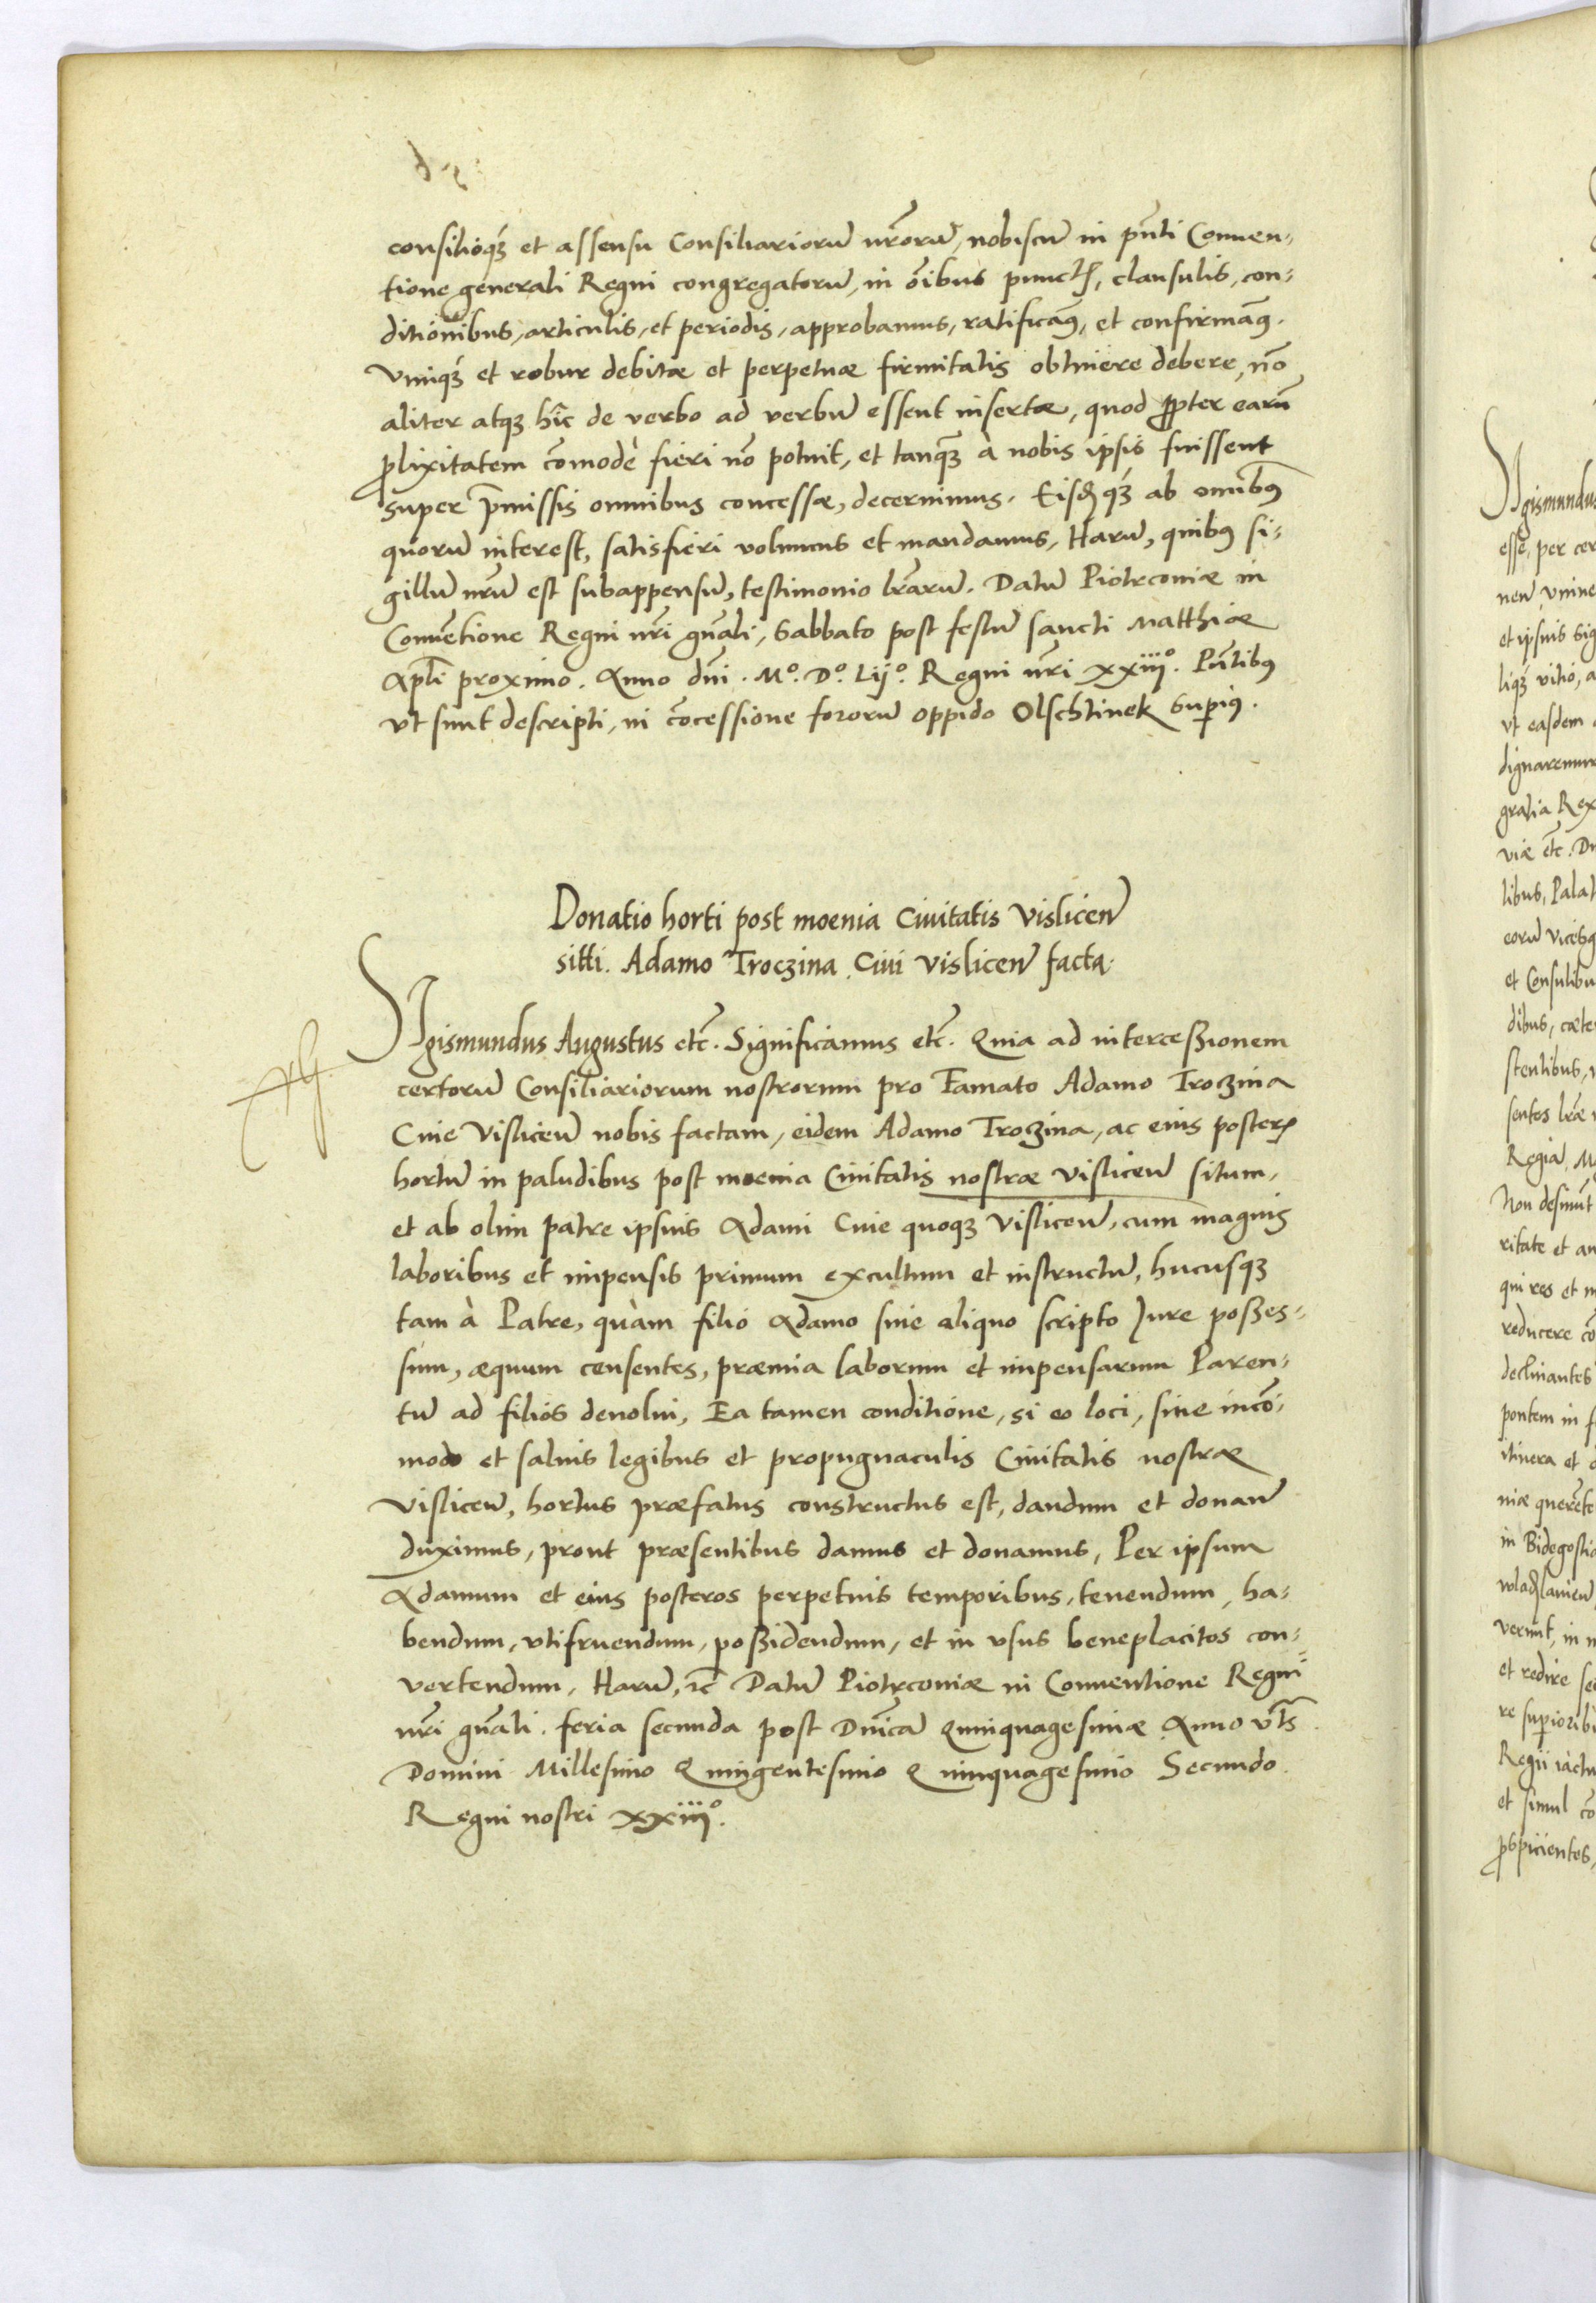 consilioq́ꝫ et assensu Consiliarioru͂ nr͂oru͂, nobiscu͂ in pn͂ti Conuen-
tione generali Regni congregatoru͂, in o͂ibus punctꝭ, clausulis, con-
ditionibus, articulis, et periodis, approbamus, ratificamꝰ, et confirmamꝰ.
Vimq́ꝫ et robur debitæ et perpetuæ firmitatis obtinere debere, no͂
aliter atqꝫ hîc de verbo ad verbu͂ essent insertæ, quod ꝓpter earu͂
ꝓlixitatem co͂modè fieri no͂ potuit, et tanqꝫ à nobis ipsis fuissent
super p͂missis omnibus concessæ, decernimus. Eisdꝫ qꝫ ab omnibꝰ
quoru͂ interest, satisfieri volumus et mandamus, Haru͂, quibꝰ si-
gillu͂ nr͂u͂ est subappensu͂, testimonio lr͂aru͂. Datu͂ Piotrconiæ in
Conue͂tione Regni nr͂i gn͂ali, Sabbato post festu͂ sancti Matthiæ
Apl͂i proximo. Anno dn͂i. Mº. Dº. Lijº. Regni nr͂i xxiiiº. Pn͂tibꝰ
vt sunt descripti, in co͂cessione fororu͂ oppido Olschtinek Superiꝰ.
Donatio horti post moenia Ciuitatis Vislicen͂
sitti. Adamo Troczina Ciui Vislicen͂ facta.
Sigismundus Augustus etc͂. Significamus etc͂. Quia ad intercessionem
certoru͂ Consiliariorum nostrorum pro Famato Adamo Troczina
Ciue Vislicen͂ nobis factam, eidem Adamo Troczina, ac eius posterꝭ
hortu͂ in paludibus post moenia Ciuitatis nostræ Vislicen͂ situm,
et ab olim patre ipsius Adami Ciue quoqꝫ Vislicen͂, cum magnis
laboribus et impensis primum excultum et instructu͂, hucusqꝫ
tam à Patre, quàm filio Adamo sine aliquo scripto Jure posses-
sum, æquum censentes, præmia laborum et impensarum Paren-
tu͂ ad filios deuolui, Ea tamen conditione, si eo loci, sine inco͂-
modo et saluis legibus et propugnaculis Ciuitatis nostræ
Vislicen͂, hortus præfatus constructus est, dandum et donan͂
duximus, prout præsentibus damus et donamus, Per ipsum
Adamum et eius posteros perpetuis temporibus, tenendum, ha-
bendum, vtifruendum, possidendum, et in vsus beneplacitos con-
vertendum, Haru͂, ꝛc͂ Datu͂ Piotrconiæ in Conuentione Regni
nr͂i gn͂ali. feria secunda post Dn͂ica͂ Quinquagesimæ Anno
Domini Millesimo Quingentesimo Quinquagesimo Secundo.
Regni nostri xxiiiº.
Sigismundus
esse, per cer
nen͂ Vnine
et ipsius Sig
liqꝫ vitio, a
vt easdem
dignaremur
gratia Rex
viæ etc͂. Du
libus, Palat
eoru͂ Vicesg
et Consulibu
dibus, cæte
stentibus,
sentes lr͂æ
Regia M
Non desinu͂t
ritate et au
qui res et m
reducere co͂
declinantes
pontem in f
itinera et
niæ quere͂te
in Bidegostia
verunt, in
et redire se
re superiorib
Regii iactu
et simul co͂
ꝓspicientes,